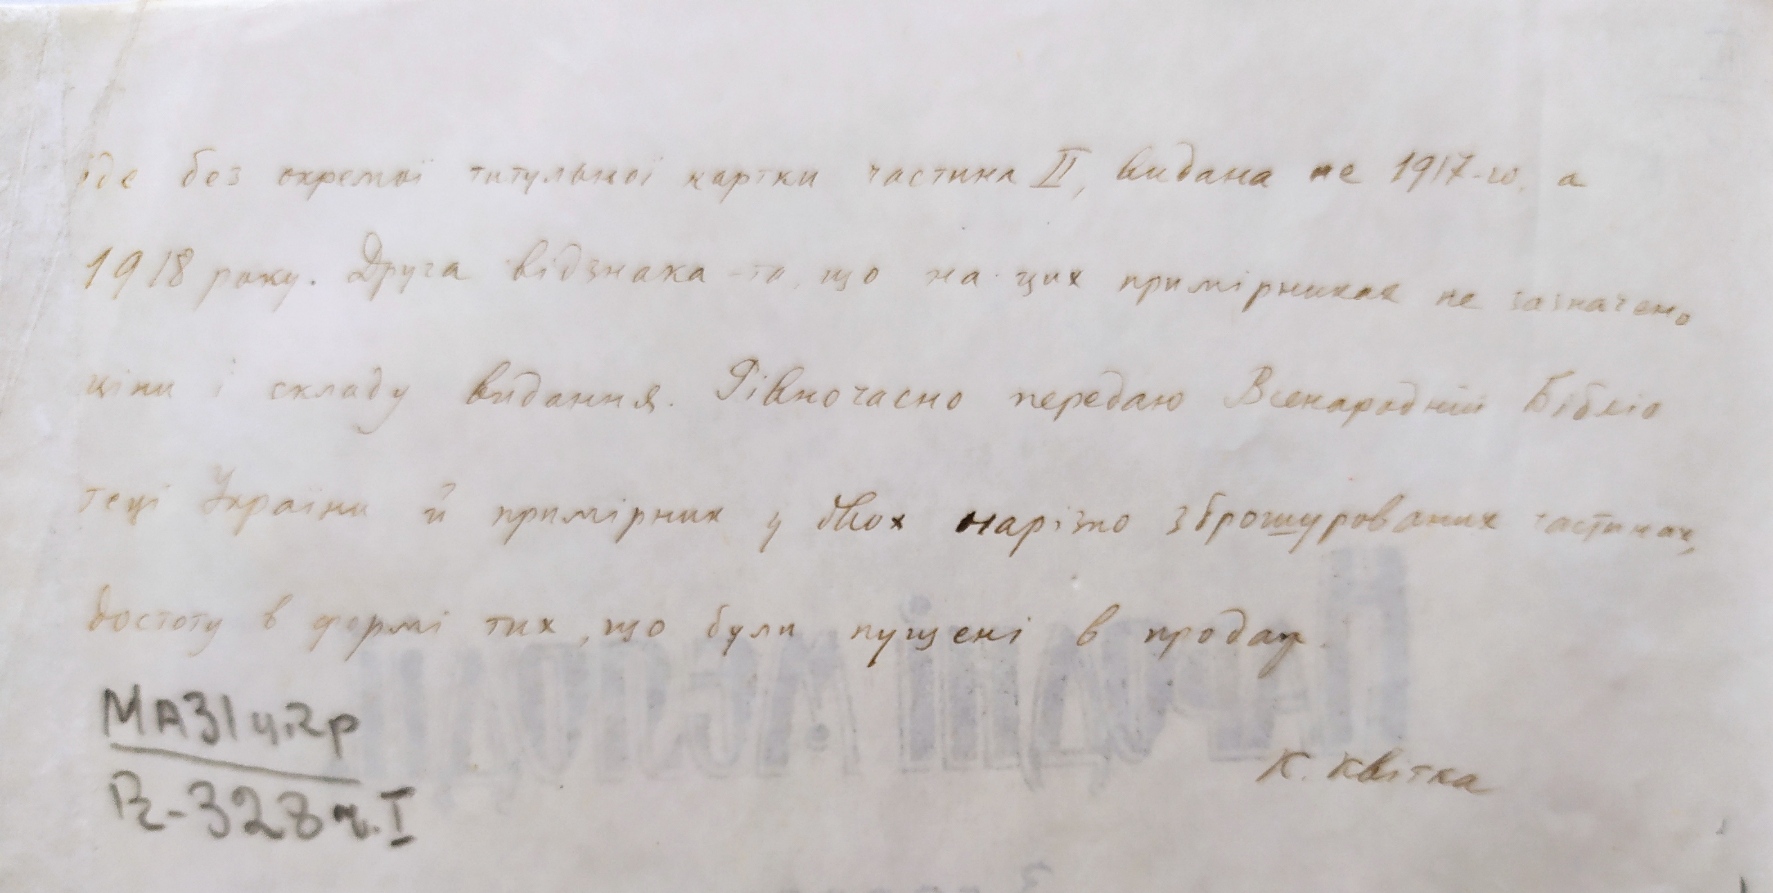 іде без окремої титульної картки частина II, видана не 1917-го, а
1918 року. Друга відзнака – та, що на цих примірниках не зазначено
ціни і складу видання. Рівночасно передаю Всенародній Бібліо
теці України й примірник у двох нарізно зброшурованих частинах,
достоту в формі тих, що були пущені в продаж.
К. Квітка
НАРОДНІ МЕЛОДІЇ